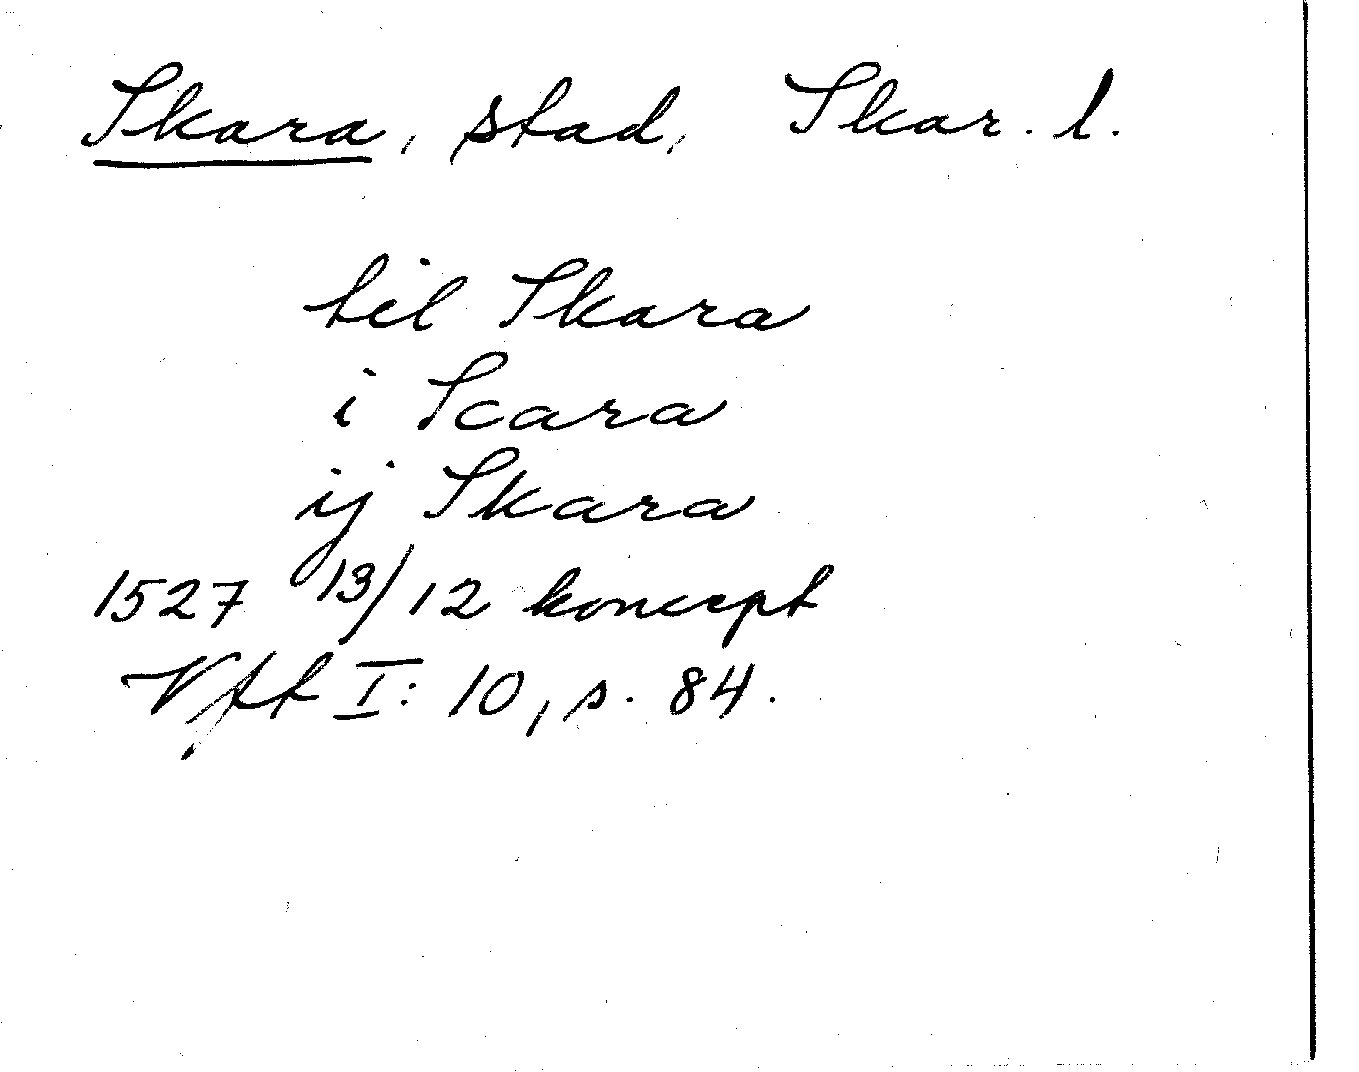 Skara, stad, Skar. l.
til Skara
i Scara
ij Skara
1527 13/12 koncept
Vft I: 10, s. 84.